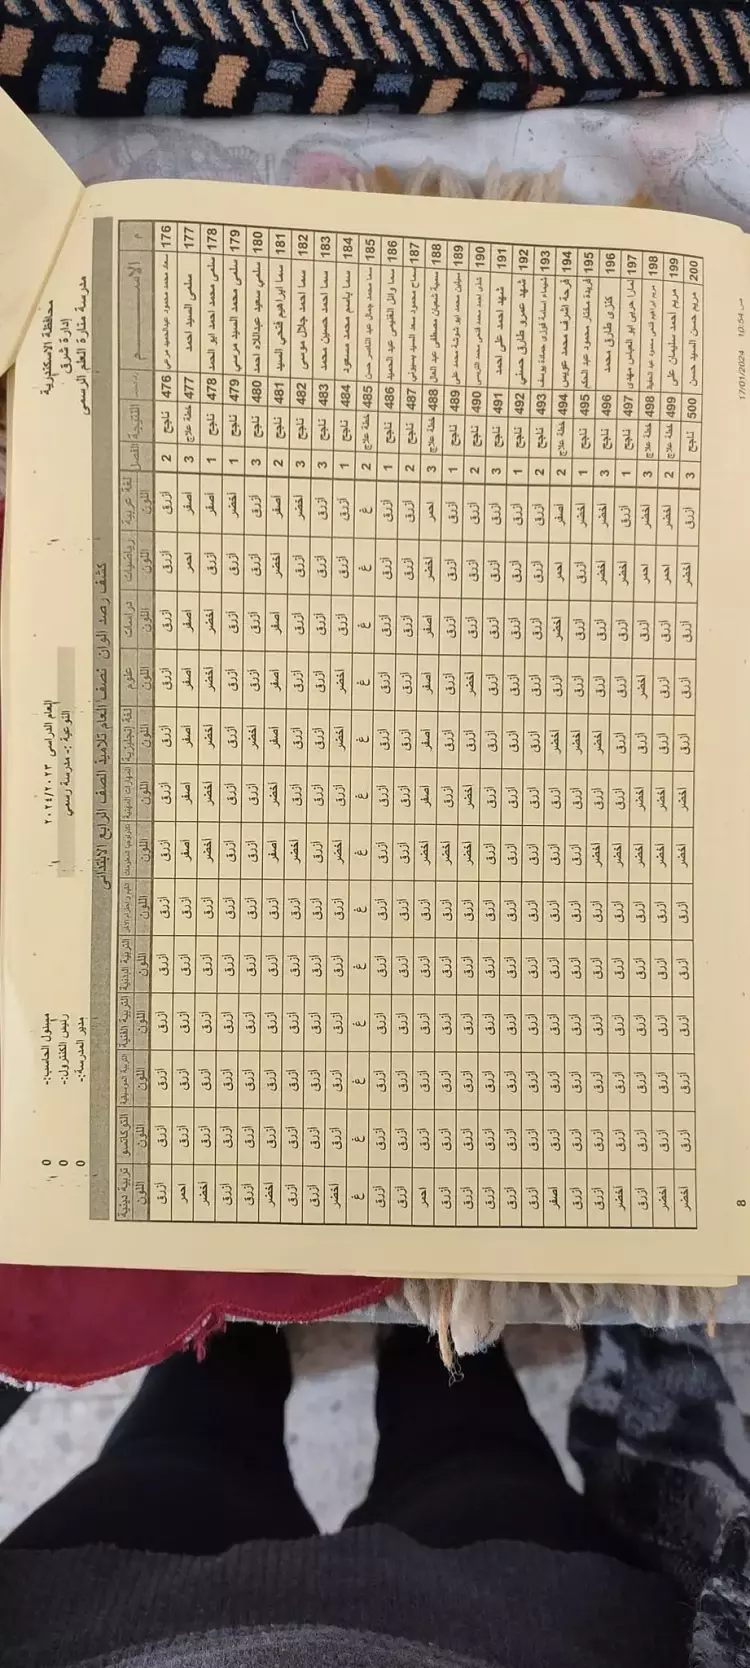 محافظة الاسكندرية
إدارة شرق
مدرسة منارة العلم الرسمي
العام الدراسى ٢٠٢٤/٢٠٢٣
النوعية :- مدرسة رسمي
مسئول الحاسب:- 0
رئيس الكنترول:- 0
مدير المدرسة:- 0
كشف رصد الوان نصف العام تلاميذ الصف الرابع الابتدائى
م الاســـــم النتيجة الفصل لغة عربية رياضيات دراسات علوم لغة انجليزية المهارات المهنية التربية البدنية التربية الفنية التربية الموسيقية التوكاتسو تربية دينية
اللون اللون اللون اللون اللون اللون اللون اللون اللون اللون اللون اللون اللون
176 476 ناجح 2 أزرق أزرق أزرق أزرق أزرق أزرق أزرق أزرق أزرق أزرق أزرق أزرق أزرق
177 سلمى السيد احمد 477 خطة علاج 3 أصفر أحمر أصفر أصفر أصفر أصفر أصفر أزرق أزرق أزرق أزرق أزرق أحمر
178 سلمى محمد احمد ابو الحمد 478 ناجح 1 أصفر أزرق أخضر أخضر أخضر أخضر أخضر أزرق أزرق أزرق أزرق أزرق أخضر
179 سلمى محمد السيد مرسي 479 ناجح 1 أخضر أزرق أزرق أزرق أزرق أزرق أزرق أزرق أزرق أزرق أزرق أزرق أزرق
180 سلمي سعيد عبداللاه احمد 480 ناجح 3 أزرق أزرق أزرق أزرق أخضر أزرق أزرق أزرق أزرق أزرق أزرق أزرق أزرق
181 سما ابراهيم فتحي السيد 481 ناجح 2 أصفر أخضر أصفر أصفر أزرق أخضر أصفر أزرق أزرق أزرق أزرق أزرق أخضر
182 سما احمد جلال موسى 482 ناجح 3 أخضر أزرق أزرق أزرق أزرق أزرق أخضر أزرق أزرق أزرق أزرق أزرق أزرق
183 سما احمد حسين محمد 483 ناجح 3 أزرق أزرق أزرق أزرق أزرق أزرق أزرق أزرق أزرق أزرق أزرق أزرق أزرق
184 سما باسم محمد مسعود 484 ناجح 1 أزرق أزرق أزرق أخضر أخضر أزرق أخضر أزرق أزرق أزرق أزرق أزرق أخضر
185 سما محمد جمال عبد الناصر حسن 485 خطة علاج 2 غ غ غ غ غ غ غ غ غ غ غ غ غ
186 سما وائل القليني عبد الحميد 486 ناجح 1 أزرق أزرق أزرق أزرق أزرق أزرق أزرق أزرق أزرق أزرق أزرق أزرق أزرق
187 سماح محمود سعد السيد بسيوني 487 ناجح 2 أزرق أزرق أزرق أزرق أزرق أزرق أزرق أزرق أزرق أزرق أزرق أزرق أزرق
188 سمية شعبان مصطفى عبد العال 488 خطة علاج 3 أحمر أخضر أصفر أصفر أصفر أصفر أخضر أزرق أزرق أزرق أزرق أزرق أحمر
189 سيلين محمد ابو شوشة محمد على 489 ناجح 1 أزرق أزرق أزرق أزرق أزرق أزرق أخضر أزرق أزرق أزرق أزرق أزرق أزرق
190 490 ناجح 2 أزرق أزرق أزرق أخضر أزرق أخضر أخضر أزرق أزرق أزرق أزرق أزرق أزرق
191 شهد احمد على احمد 491 ناجح 3 أزرق أزرق أزرق أزرق أزرق أزرق أزرق أزرق أزرق أزرق أزرق أزرق أزرق
192 شهد عمرو طارق حسني 492 ناجح 1 أزرق أزرق أزرق أزرق أزرق أزرق أزرق أزرق أزرق أزرق أزرق أزرق أزرق
193 شيماء اسامة فوزى حمادة يوسف 493 ناجح 2 أزرق أزرق أزرق أزرق أزرق أزرق أزرق أزرق أزرق أزرق أزرق أزرق أزرق
194 فرحة اشرف محمد عويس 494 خطة علاج 2 أصفر أحمر أخضر أزرق أخضر أزرق أزرق أزرق أزرق أزرق أزرق أزرق أصفر
195 فريدة مختار محمود عبد الحكم 495 ناجح 1 أخضر أزرق أزرق أزرق أخضر أزرق أزرق أزرق أزرق أزرق أزرق أزرق أزرق
196 كنزى طارق محمد 496 ناجح 3 أخضر أخضر أزرق أزرق أخضر أزرق أخضر أزرق أزرق أزرق أزرق أزرق أزرق
197 لمارا حربى ابو العباس مهدى 497 ناجح 1 أزرق أخضر أزرق أزرق أزرق أزرق أخضر أزرق أزرق أزرق أزرق أزرق أخضر
198 498 خطة علاج 3 أخضر أحمر أزرق أخضر أزرق أخضر أخضر أزرق أزرق أزرق أزرق أزرق أزرق
199 مريم احمد سليمان على 499 خطة علاج 2 أخضر أحمر أزرق أزرق أزرق أخضر أخضر أزرق أزرق أزرق أزرق أزرق أخضر
200 مريم حسن السيد حسن 500 ناجح 3 أزرق أخضر أزرق أزرق أزرق أخضر أخضر أزرق أزرق أزرق أزرق أزرق أخضر
17/01/2024
8